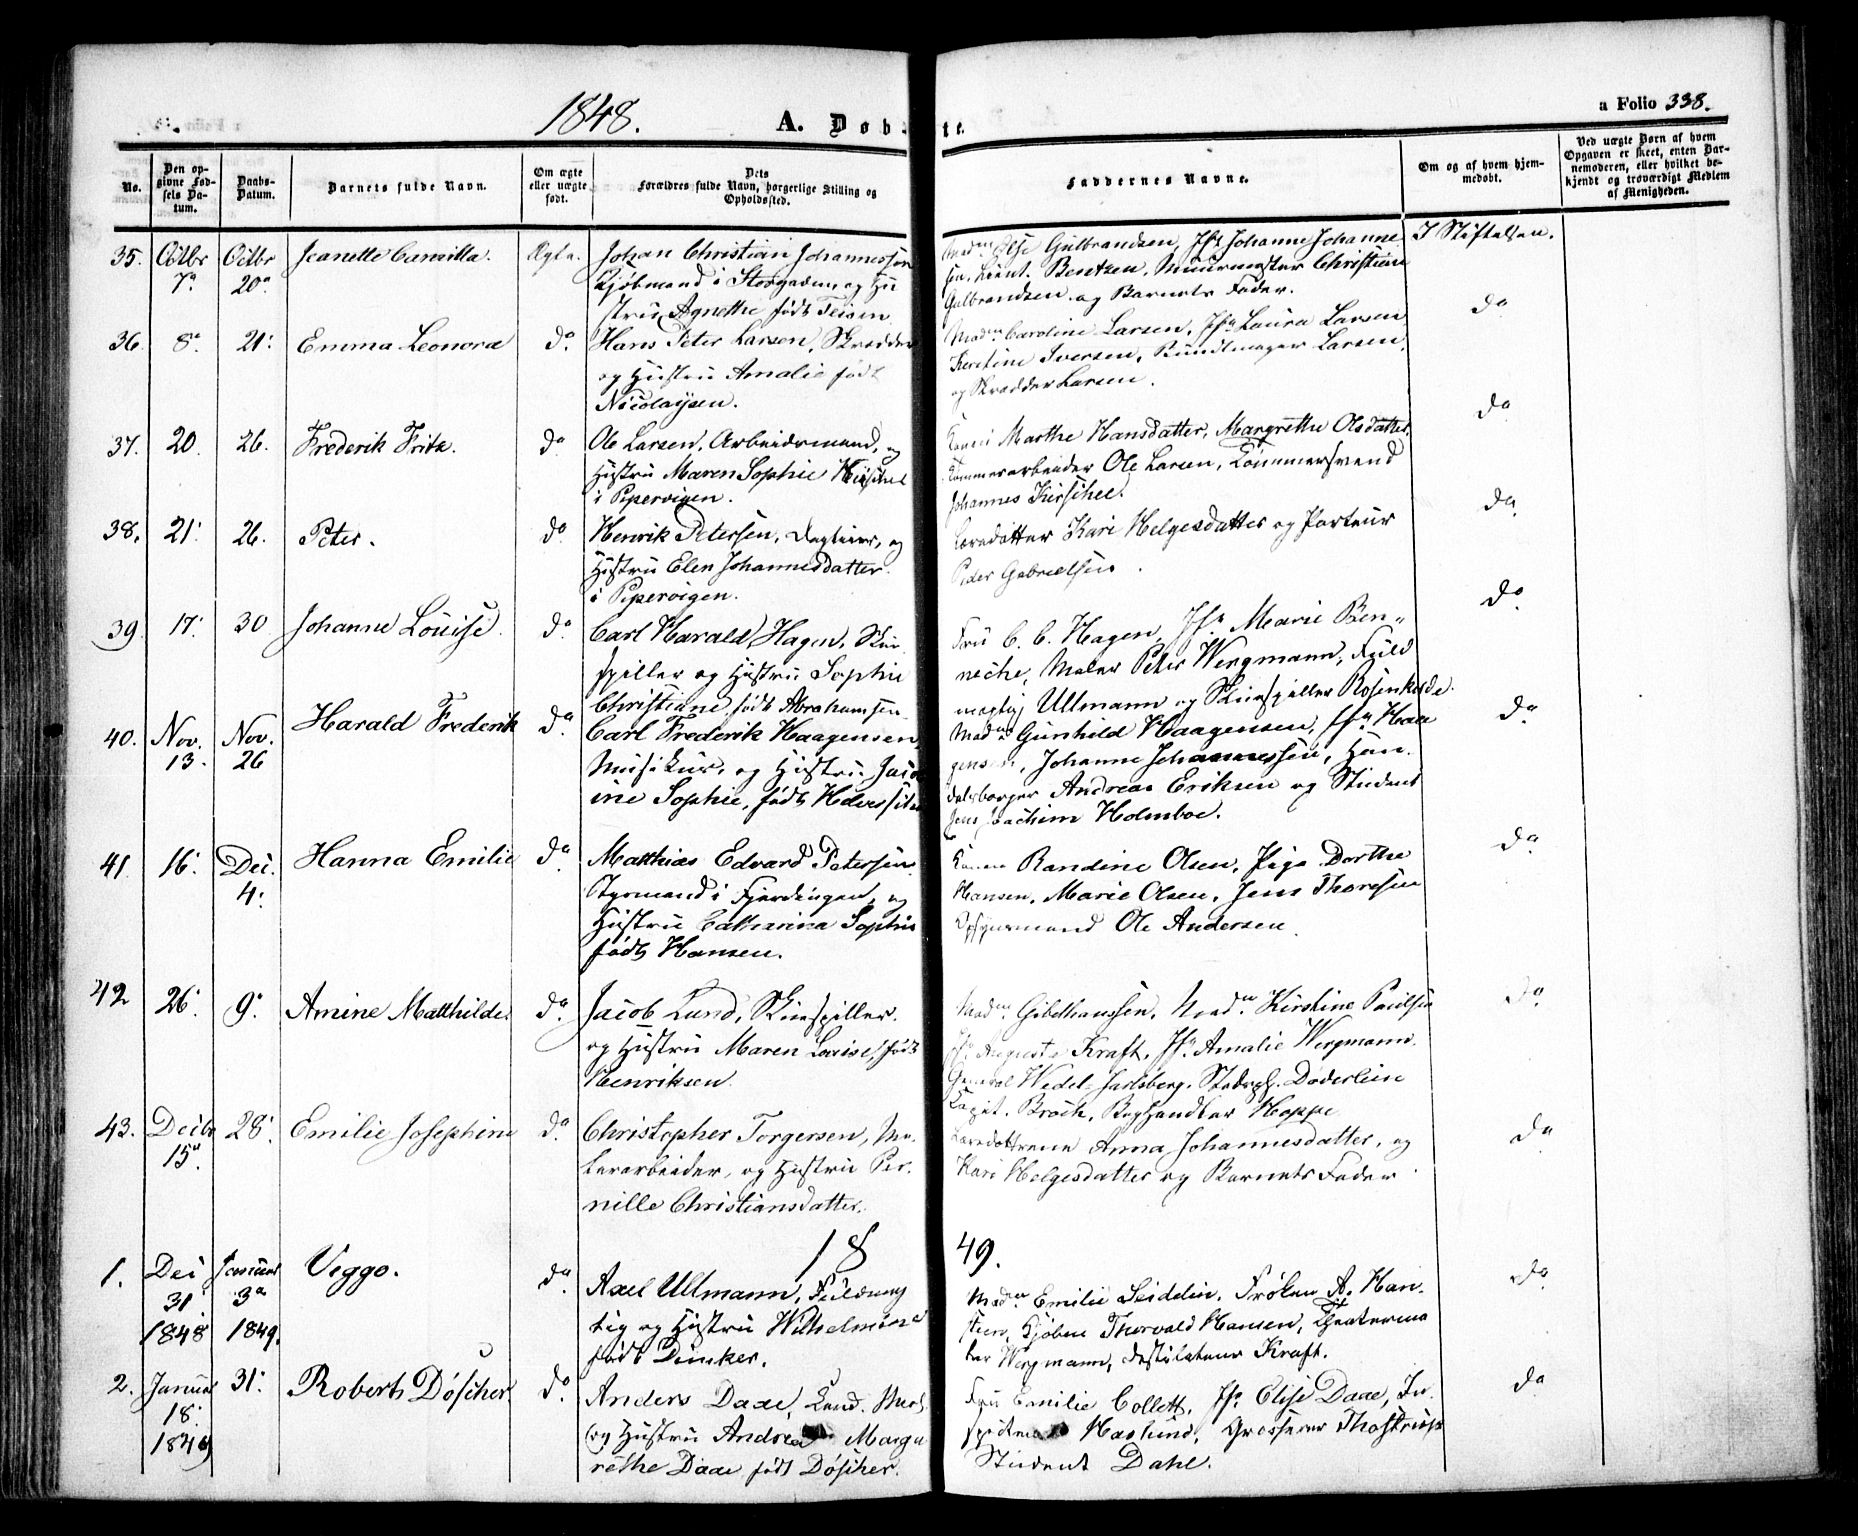 1848. A. Døbte.
a Folio 338.
No.
Den opgivne Fødsels Datum.
Daabs-Datum.
Barnets fulde Navn.
Om ægte eller uægte født.
Dets Forældres fulde Navn, borgerlige Stilling og Opholdssted.
Faddernes Navne.
Om og af hvem hjemmedøbt.
Ved uægte Børn af hvem Opgaven er skeet, enten Barnemoderen, eller hvilket bekjendt og troværdigt Medlem af Menigheden.
35. Octbr 7de Octbr 20de Jeanette Camilla. Ægte.
Johan Christian Johannessen
Kjøbmand i Storgaden, og Hu
stru Agnethe født
Madm Else Gulbrandsen, Jfr Johanne Johanne
sen, Lieut. Bentzen, Muurmester Christian
Gulbrandsen og Barnets Fader.
I Stiftelsen.
36. 8de 21: Emma Leonora do
Hans Peter Larsen, Skrædder
og Hustru Amalie født
Nicolaysen.
Madm Caroline Larsen, Jfr Laura Larsen,
Kirstine Iversen, Bundtmager Larsen,
og Skrædder Larsen.
do
37. 20. 26. Frederik Fritz. do
Ole Larsen, Arbeidsmand, og
Hustru Maren Sophie
i Pipervigen.
Konen Marthe Hansdatter, Margrethe Olsdatter,
Ole Larsen, Tømmersvend
Johannes
do
38. 21: 26. Peter. do
Henrik Petersen, Dagleier, og
Hustru Elen Johannesdatter
i Pipervigen.
Læredatter Kari Helgesdatter og Porteur
Peder Gabrielsen.
do
39 17: 30 Johanne Louise. do
Carl Harald Hagen, Skue
spiller og Hustru Sophie
Christiane, født Abrahamsen
Fru C. C. Hagen, Jfr Marie Ben-
neche, Maler Peter Wergmann, Fuld
mægtig Ullmann og Skuespiller Rosenkilde.
do
40. Nov. 13. Nov. 26 Harald Frederik do
Carl Frederik Haagensen,
Musikus, og Hustru Jaco
ine Sophie, født
Madm Gunhild Haagensen, Jfr Haa
gensen, Johanne Johannessen, Han
delsborger Andreas Eriksen og Student
Jens Joachim Holmboe.
do
41. 16: Dec. 4: Hanna Emilie do
Matthias Edvard Petersen
Styrmand i Fjerdingen, og
Hustru Catharina Sophie
født Hansen.
Konen Randine Olsen, Pige Dorthe
Hansen, Marie Olsen, Jens Thoresen
Opsynsmand Ole Andersen.
do
42 26: 9: Amine Matthilde. do
Jacob Lund, Skuespiller.
og Hustru Maren Lovise, født
Henriksen.
Madm Gibelhaussen, Madm Kirstine Paulsen
Jfr Augusta Kraft, Jfr Amalie Wergmann.
General Wedel-Jarlsberg, Stadsph. Døderlein
Capit. Broch, Boghandler Hoppe
do
43. Decbr 15de 28: Emilie Josephine do
Christopher Torgersen, Ma-
lerarbeider, og Hustru Per-
nille Christiansdatter.
Læredøttrene Anna Johannesdatter, og
Kari Helgesdatter og Barnets Fader.
do
1849.
1. Dec 31 1848 Januar 3de 1849. Viggo. do
Axel Ullmann, Fuldmæg
tig og Hustru Wilhelmine
født Duncker.
Madm Emilie Seidelin, Frøken A. Han-
steen, Kjøbm Thorvald Hansen, Theaterma
ler Wergmann, Destilateur Kraft.
do
2. Januar 18: 1849 31: Robert Döscher. do
Anders Daae, Cand. Med.
og Hustru Andrea Marga
rethe Daae født Döscher.
Fru Emilie Collett, Jfr Elise Daae, In-
Haslund, Grosserer Thostrup
Student Dahl.
do